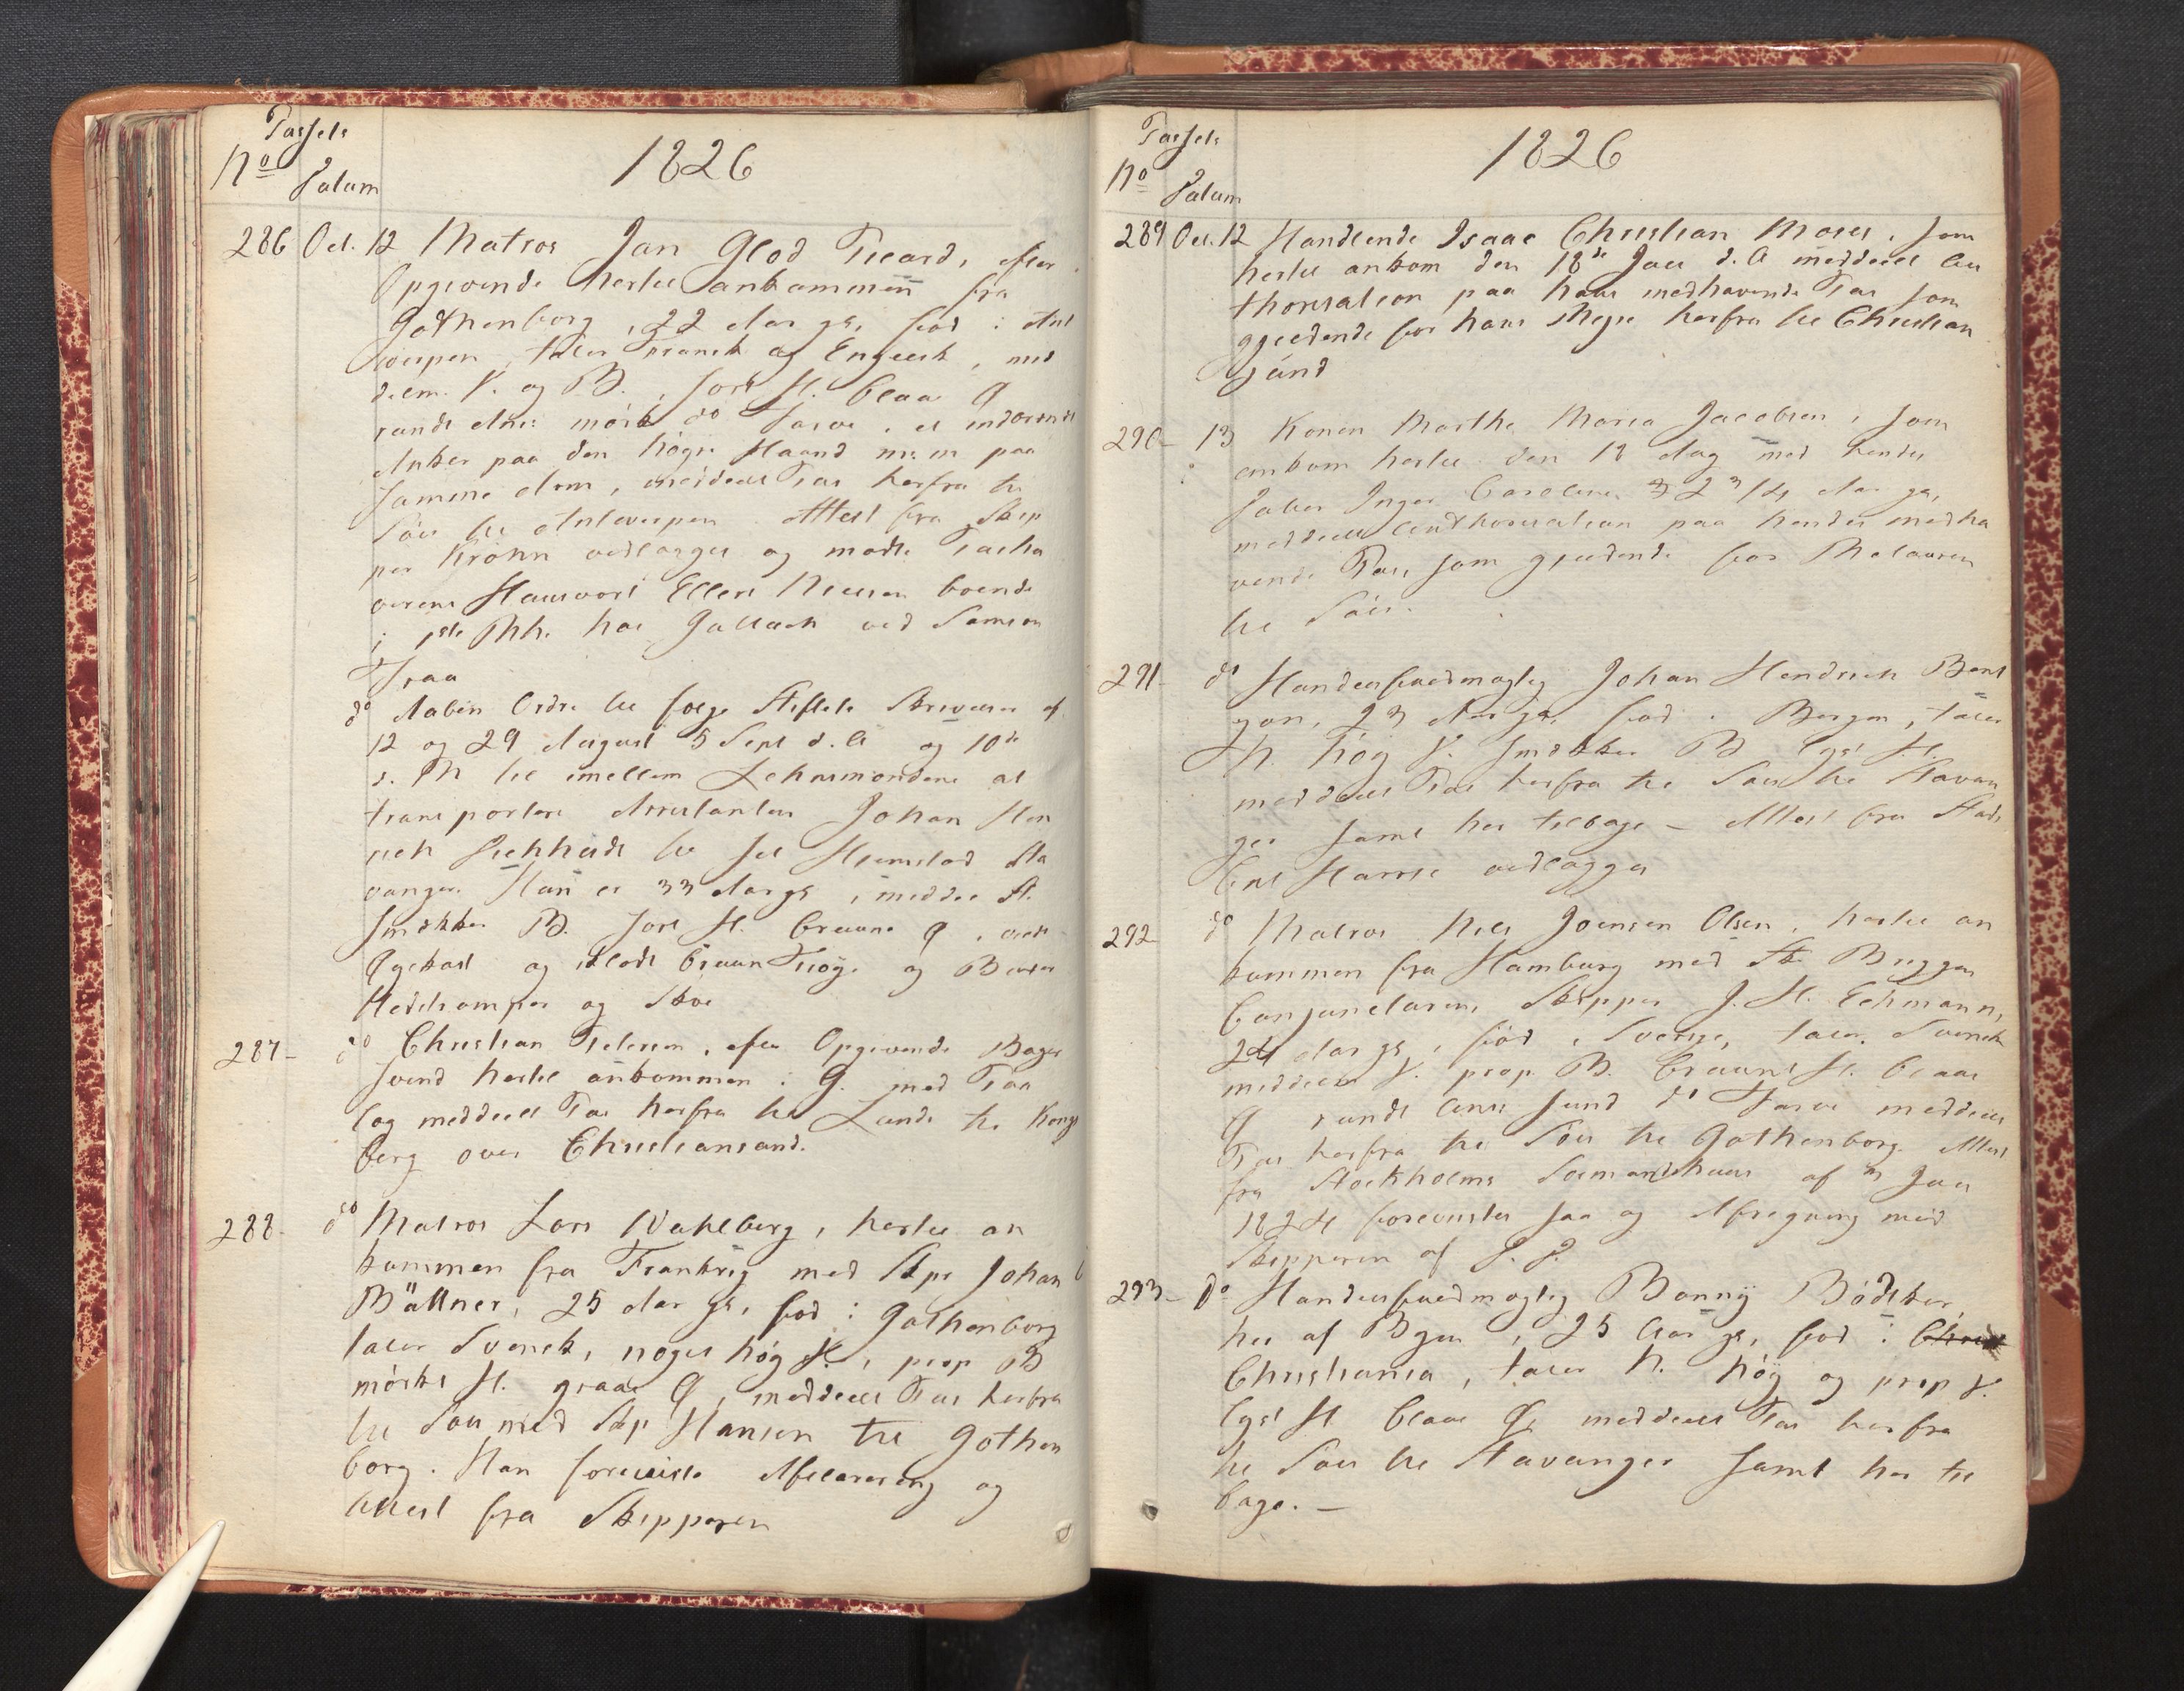 Passets
No Datum
1826
286 Oct. 12 Matros Jan Glod Picard, efter
Opgivende hertil ankommen fra
Gothenborg, 22 Aar gl, fød i Ant
werpen, taler Fransk og Engelsk, mid
delm. V. og B., sort H. blaa Ø
rundt Ans: mörk do Farve, et indbrændt
Anker paa den høgre Haand
samme Arm, meddeelt Pas herfra til
Søes til Antwerpen Attest fra Skip
per Kröhn vedlagges og mødte Pasha
verens Huusvært Ellert Nielsen boende
i ste Rhe hos Gullach ved
do Aaben Ordre til følge Stiftets Skrivelser af
12 og 29 August 5 Sept d. A og 10de
d. M til imellem Lehnsmændene at
transportere Arrestanten Johan Hen
rich til sit Hjemsted Sta
vanger. Han er 33 Aar gl, middel St.
smækker B. sort H. bruune Ø,
og iklædt bruun Trøye og Buxer
og Skoe
287 - do Christian Petersen, efter Opgivende Bager
svend hertil ankommen i G. med Paa
log meddeelt Pas herfra til Lands til Kongs
berg over Christiansand.
288 - do Matros Lars Wahlberg, hertil an
kommen fra Frankrig med Skpr Johan
Bältner, 25 Aar gl, fød i Gothenborg
taler Svensk, noget høg V., prop B
mörkt H. graae Ø, meddeelt Pas herfra
til Søes med Skp Hansen til Gothen
borg. Han foreviiste Afklarering og
Attest fra Skipperen
Passets
No Datum
1826
289 Oct. 12 Handlende Isaac Christian Moses, som
hertil ankom den 18de Juli d. A meddeelt Au
thorisation paa hans medhavende Pas som
gjeldende for hans Rejse herfra til Christian
sund
290 - 13 Konen Marthe Maria Jacobsen, som
ankom hertil den 18 Aug med hendes
Datter Inger Caroline 2 3/4 Aar gl,
meddeelt Authorisation paa hendes medha
vende Pas, som gjeldende for Retouren
til Søes.
291 - do Handelsfuldmægtig Johan Hendrich Bent
zon, 23 Aar gl, fød i Bergen, taler
N. høg V. smækker B lyst H.
meddeelt Pas herfra til Søes til Stavan
ger samt her tilbage - Attest fra Stads
vedlagges
292 - do Matros Nils Joensen Olsen, hertil an
kommen fra Hamburg med Briggen
Skipper J. H. Eckmann,
24 Aar gl, fød i Sverige, taler Svensk
middelm V. prop B. bruunt H. blaae
Ø rundt Ans sund do Farve meddeelt
Pas herfra til Søes til Gothenborg. Attest
fra Stockholms Sömandshuus af Juli
1824 foreviistes saa og Afregning med
Skipperen af D. D.
293 - do Handelsfuldmægtig Bonny Bödtker,
her af Byen, 25 Aar gl, fød i
Christiania, taler N. höy og prop V.
lyst H. blaae Ø, meddeelt Pas herfra
til Søes til Stavanger samt her til
bage. -